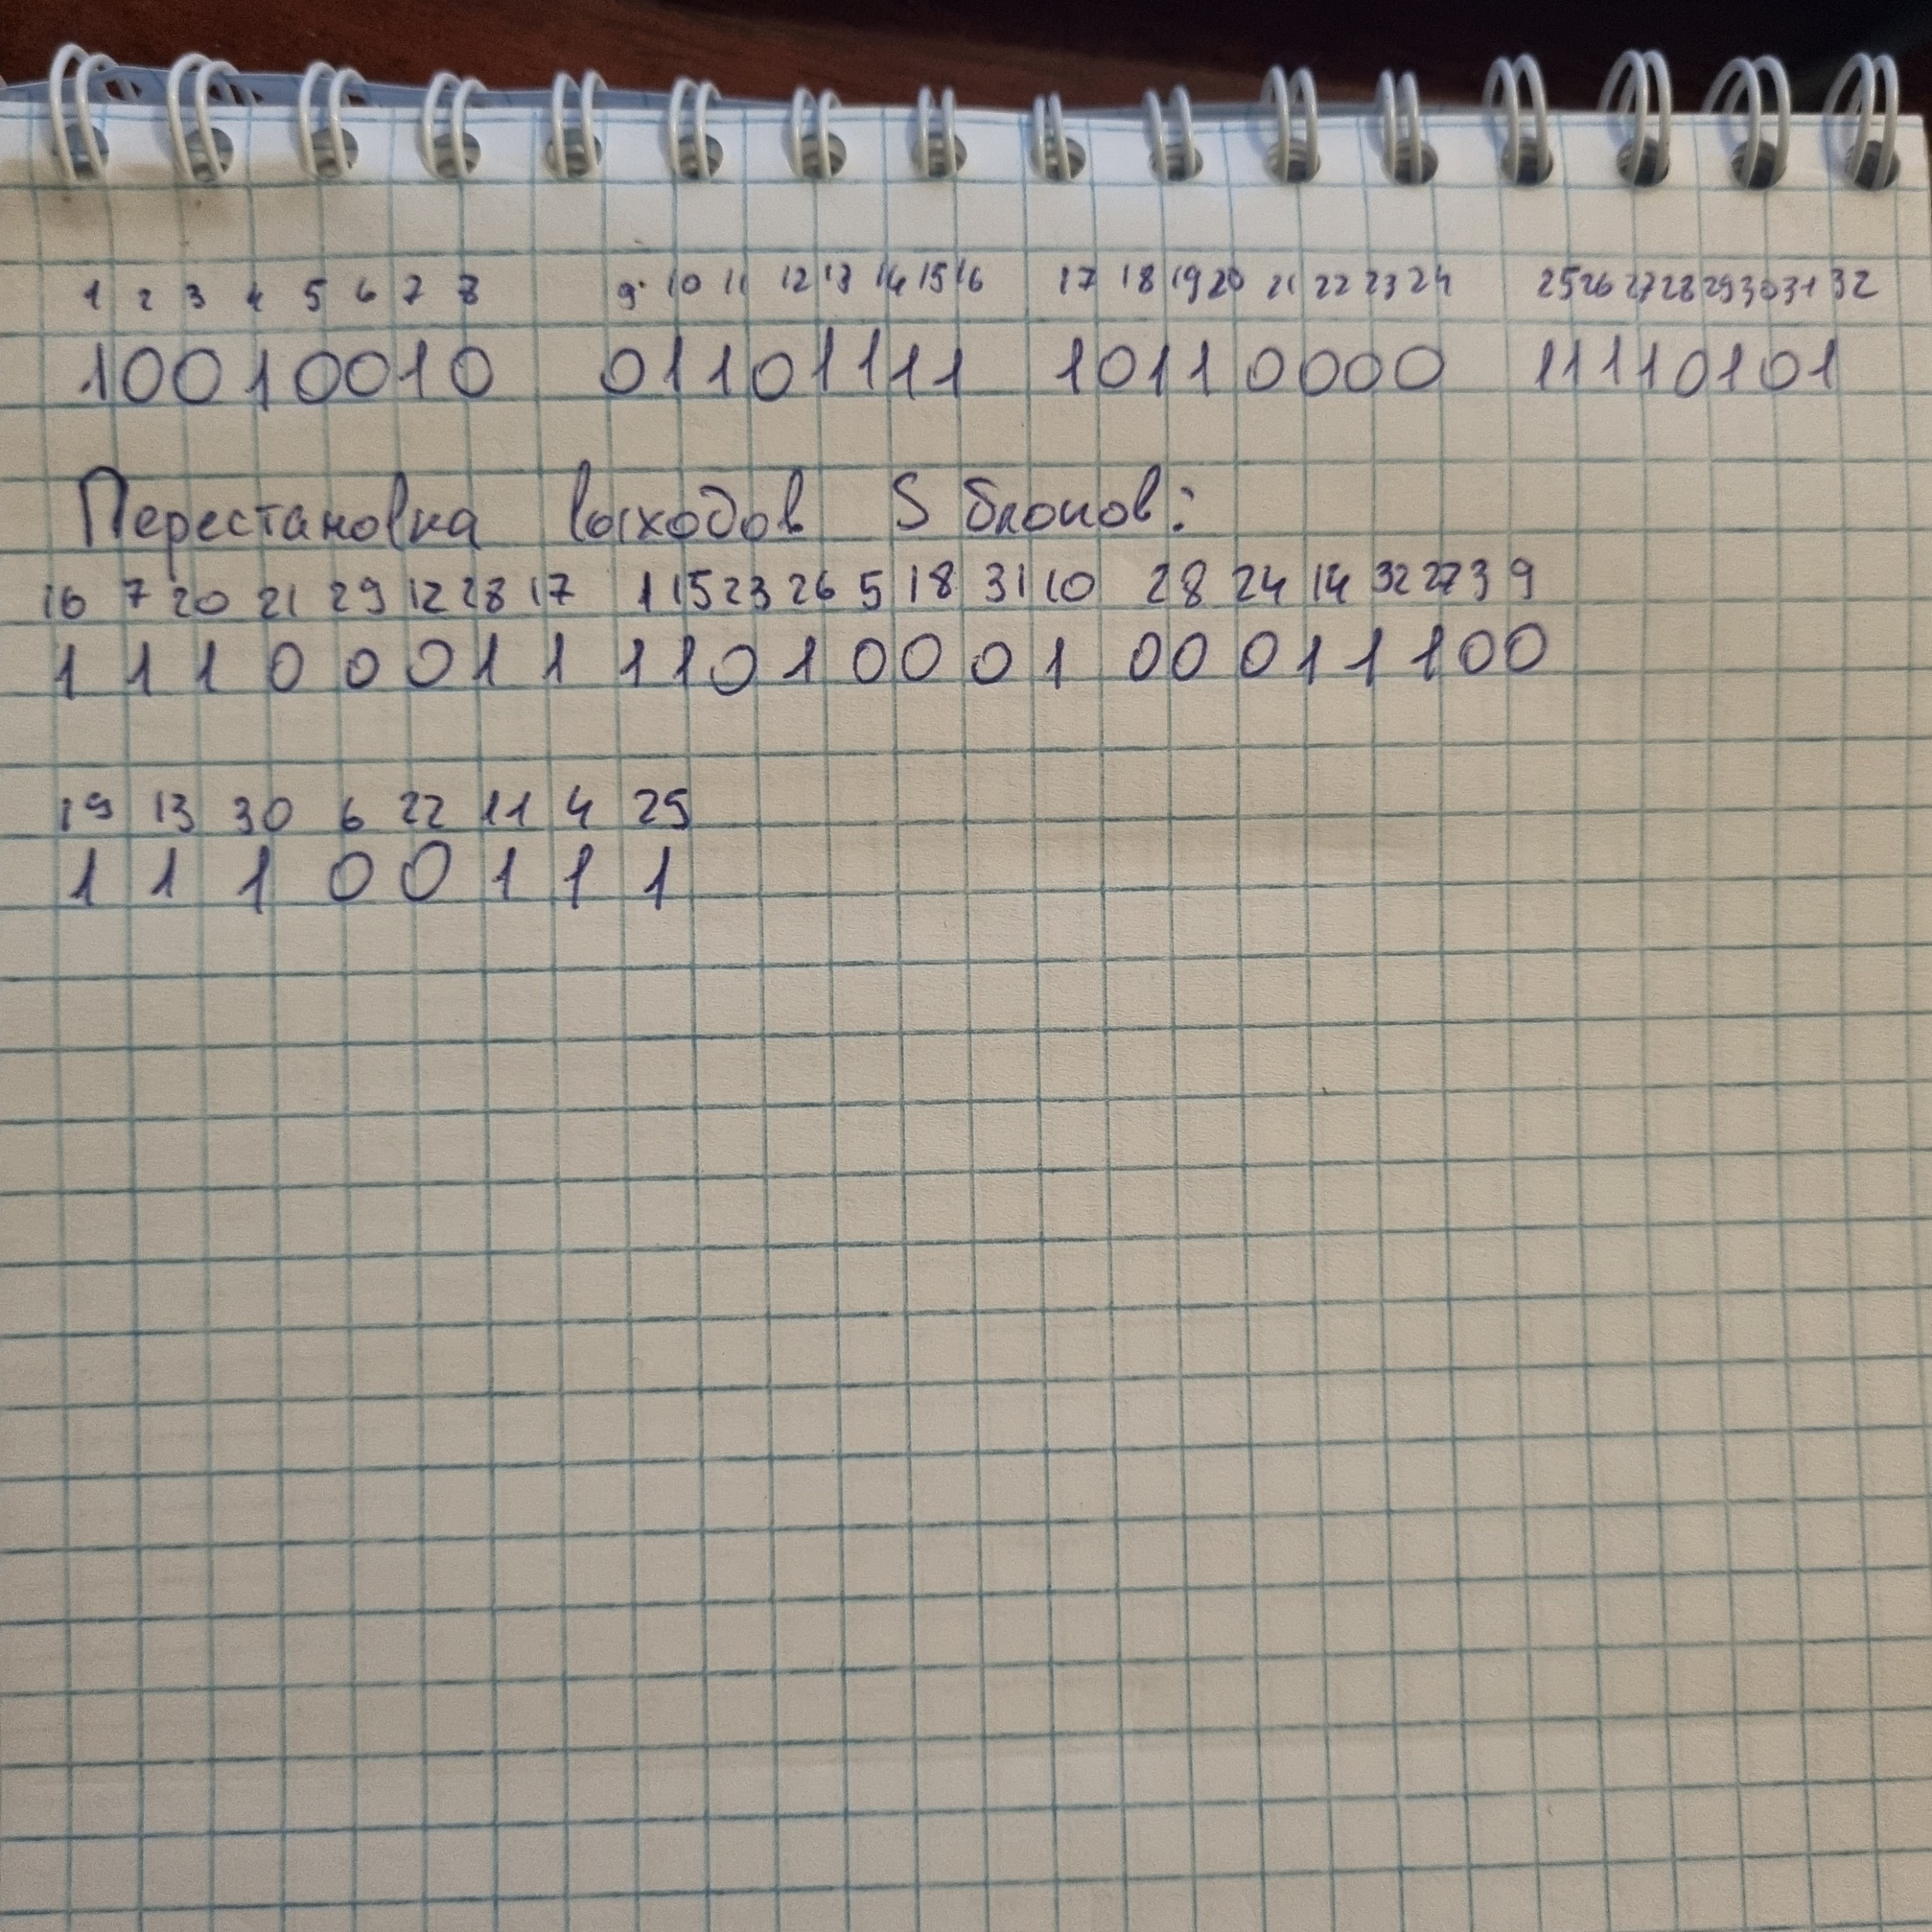 1 2 3 4 5 6 7 8 9 10 11 12 13 14 15 16 17 18 19 20 21 22 23 24 25 26 27 28 29 30 31 32
10010010 01101111 10110000 11110101
Перестановка выходов S блоков:
16 7 20 21 29 12 28 17 1 15 23 26 5 18 31 10 28 24 14 32 27 3 9
1 1 1 0 0 0 1 1 1 1 0 1 0 0 0 1 0 0 0 1 1 1 0 0
19 13 30 6 22 11 4 25
1 1 1 0 0 1 1 1